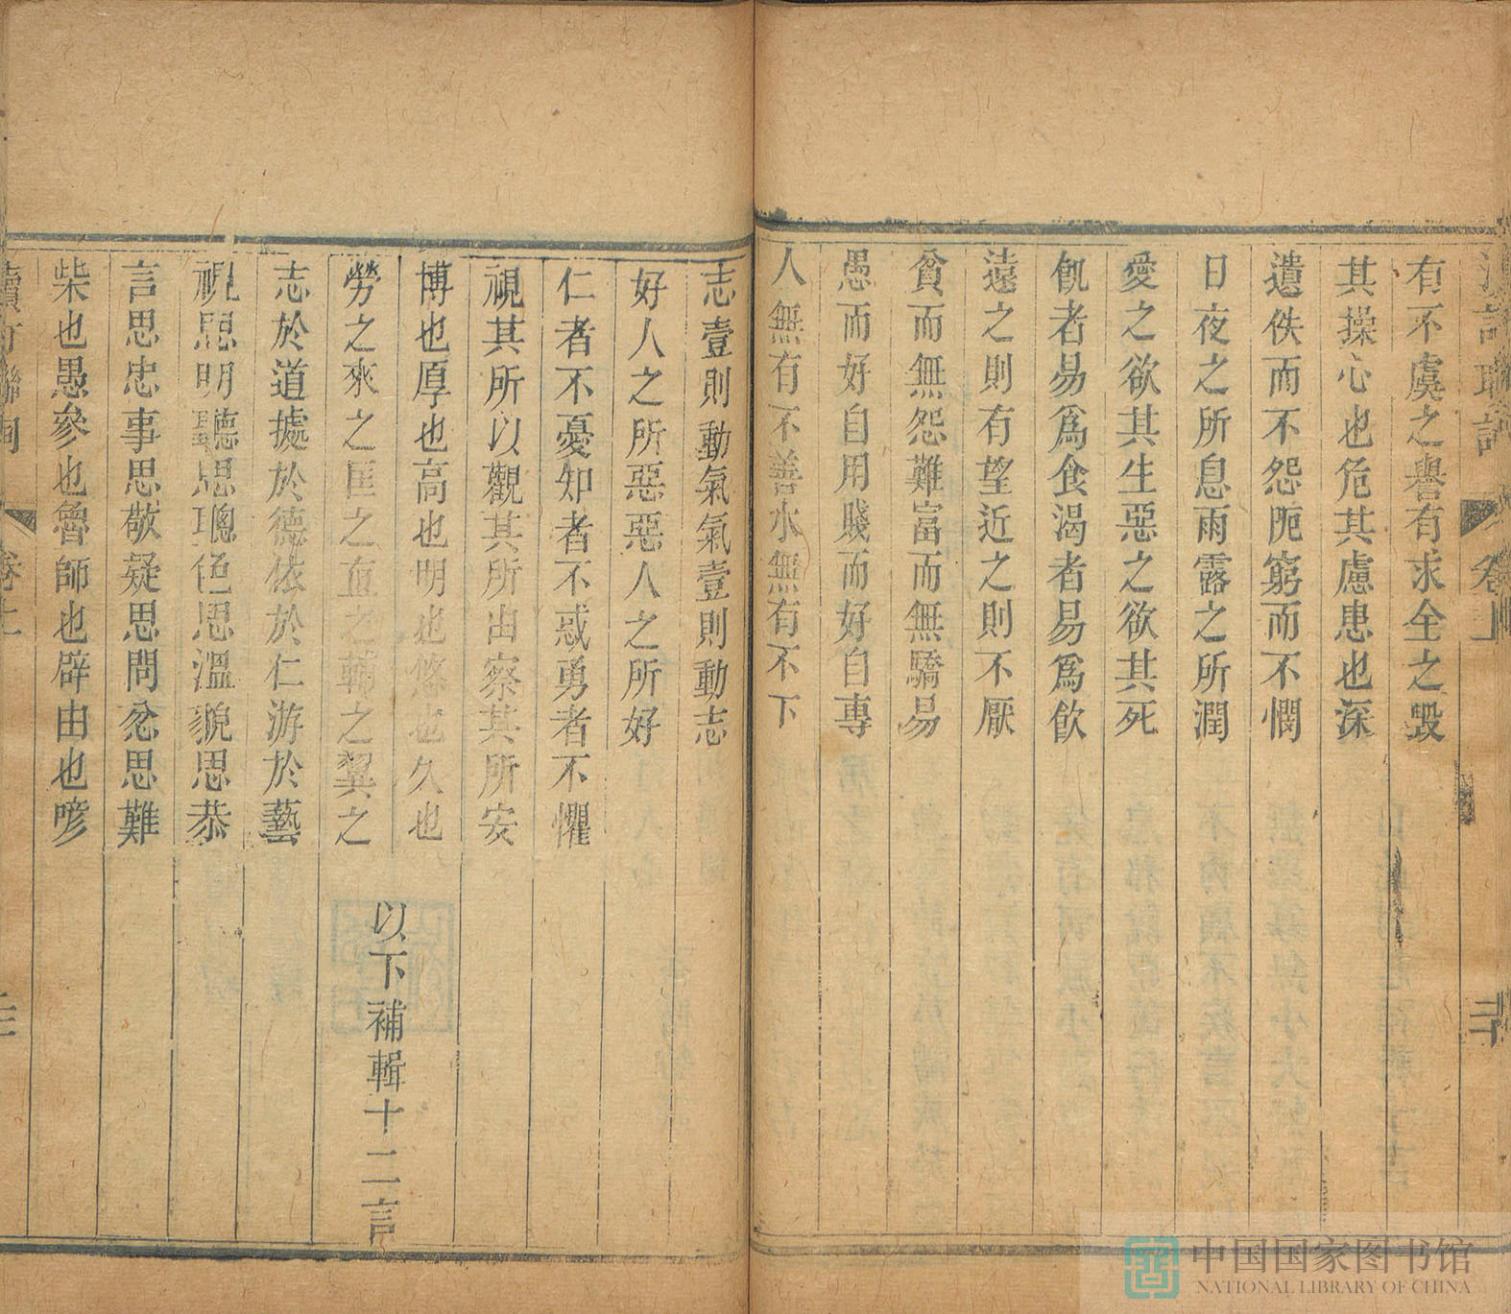 卷上
有不虞之譽有求全之毀
其操心也危其慮患也深
遺佚而不怨阨窮而不憫
日夜之所息雨露之所潤
愛之欲其生惡之欲其死
飢者易爲食渴者易爲飮
遠之則有望近之則不厭
貧而無怨難富而無驕易
愚而好自用賤而好自專
人無有不善水無有不下
志壹則動氣氣壹則動志
好人之所惡惡人之所好
仁者不憂知者不惑勇者不懼
視其所以觀其所由察其所安
博也厚也高也明也悠也久也
勞之來之匡之直之輔之翼之
以下補輯十二言
志於道據於德依於仁游於藝
視思明聽思聰色思溫貌思恭
言思忠事思敬疑思問忿思難
柴也愚參也魯師也辟由也喭
卷上
中国国家图书馆
NATIONAL LIBRARY OF CHINA